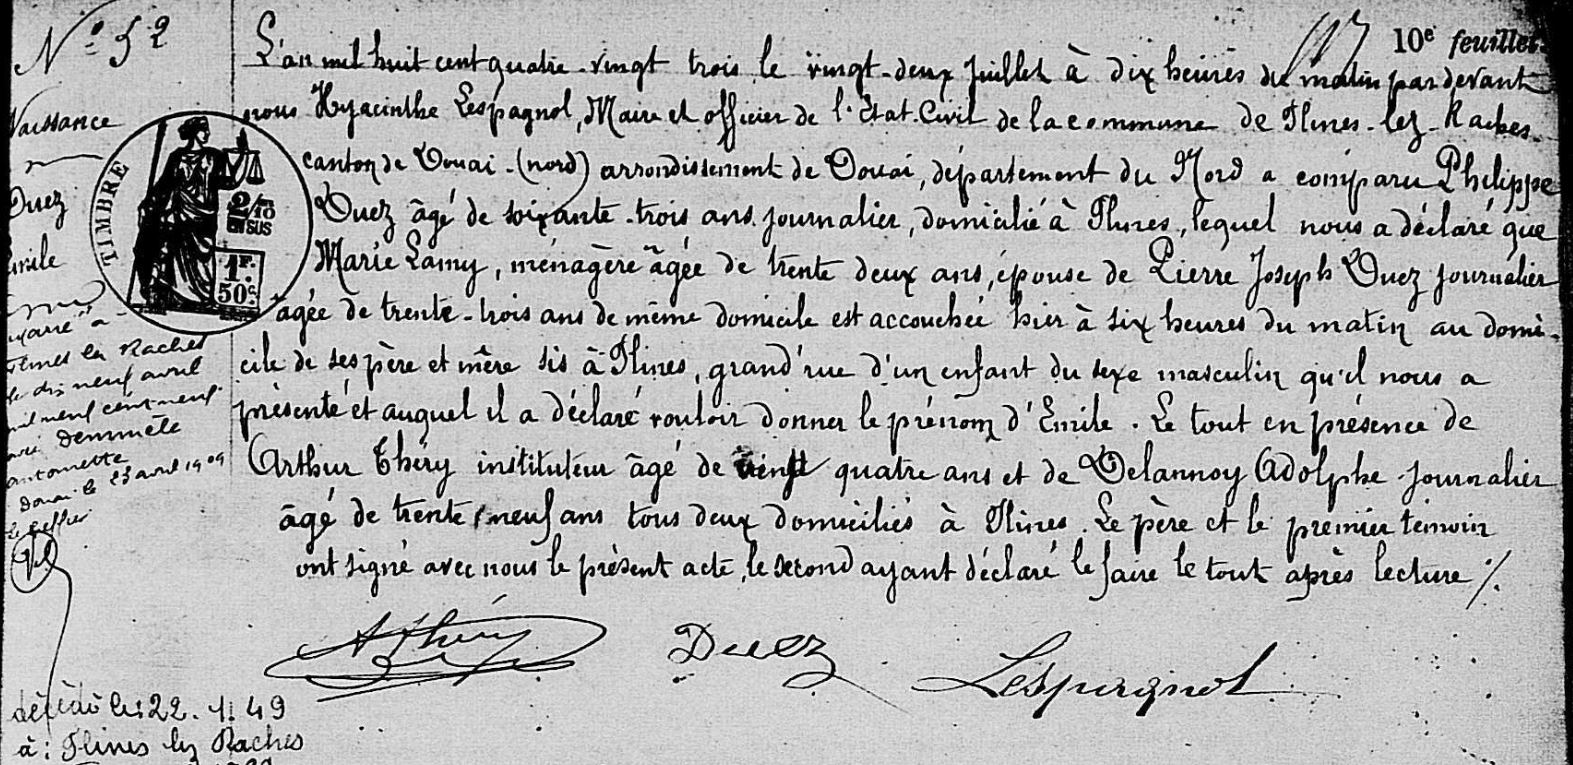 N° 52
Naissance
Duez
Emile
marié à
Flines lez Raches
le dix neuf avril
mil neuf cent neuf
avec Demmete
antoinette
Douai le 23 avril 1909
le greffier
décédé le: 22. 1. 49
à: Flines lez Raches
TIMBRE
2/10
EN SUS
1F.
50c.
10e feuillet.
L'an mil huit cent quatre-vingt trois le vingt-deux Juillet à dix heures du matin par devant
nous Hyacinthe Lespagnol, Maire et officier de l'Etat-Civil de la commune de Flines-lez-Raches
canton de Douai-(nord) arrondissement de Douai, département du Nord a comparu Philippe
Duez âgé de soixante-trois ans journalier, domicilié à Flines, lequel nous a déclaré que
Marie Lamy, ménagère âgée de trente deux ans, épouse de Pierre Joseph Duez journalier
âgée de trente-trois ans de même domicile est accouchée hier à six heures du matin au domi-
cile de ses père et mère sis à Flines, grand'rue d'un enfant du sexe masculin qu'il nous a
présenté et auquel il a déclaré vouloir donner le prénom d'Emile. Le tout en présence de
Arthur Théry instituteur âgé de vingt quatre ans et de Delannoy Adolphe journalier
âgé de trente neuf ans tous deux domiciliés à Flines. Le père et le premier témoin
ont signé avec nous le présent acte, le second ayant déclaré le faire le tout après lecture ./.
A Théry
Duez
Lespagnol